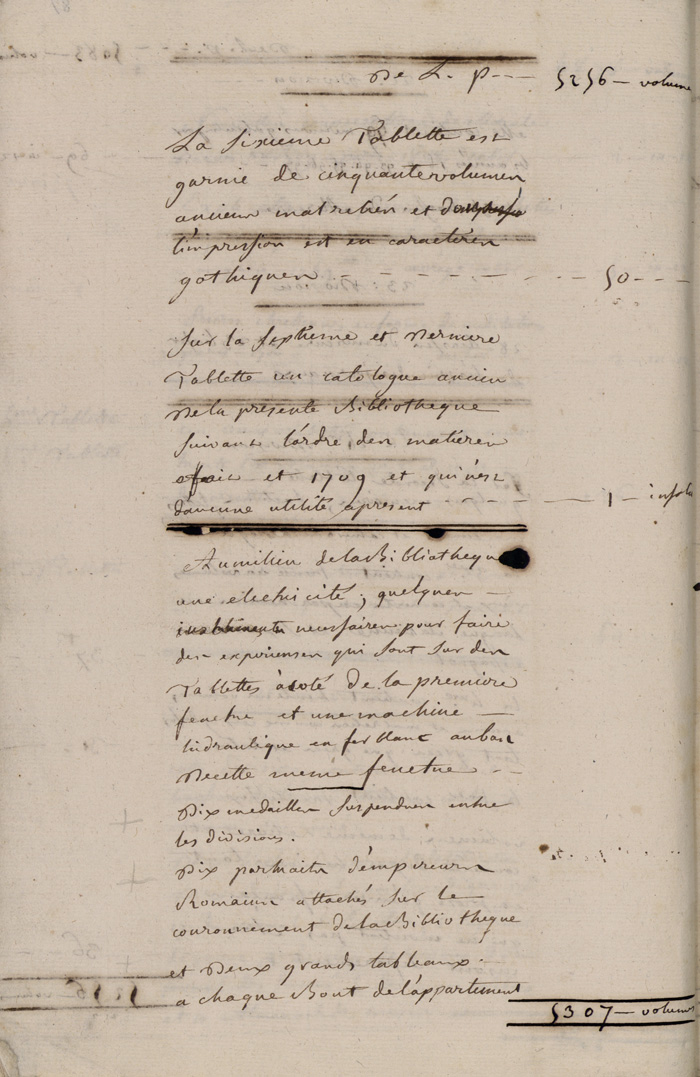 De L. p--- 5256 - volume
La Sixieme Tablette est
garnie de cinquante volumen
ancien maltretién et
l'impression est en caractéren
gothiquen - - - - - - 50 - - -
Sur la septieme et derniere
Tablette un catologue ancien
De la présente Bibliotheque
suivant l'órdre den matieren
et 1709 et qui n'est
d'aucune utilité apresent - - - 1 - infol
Au milieu de la Bibliotheque
une électricité, quelquen -
necessairen pour faire
des experiensen qui sont sur den
Tablettes à coté de la premiere
fenetre et une machine -
hidraulique en fer blanc au bas
De cette meme fenetre - -
Dix medaillen suspenduen entre
les divisions.
Dix portraits d'émpereurn
Romain attachés sur le
couronnement de la Bibliotheque
et Deux grands tableaux.
a chaque Bout de l'appartement
5307 - volumes